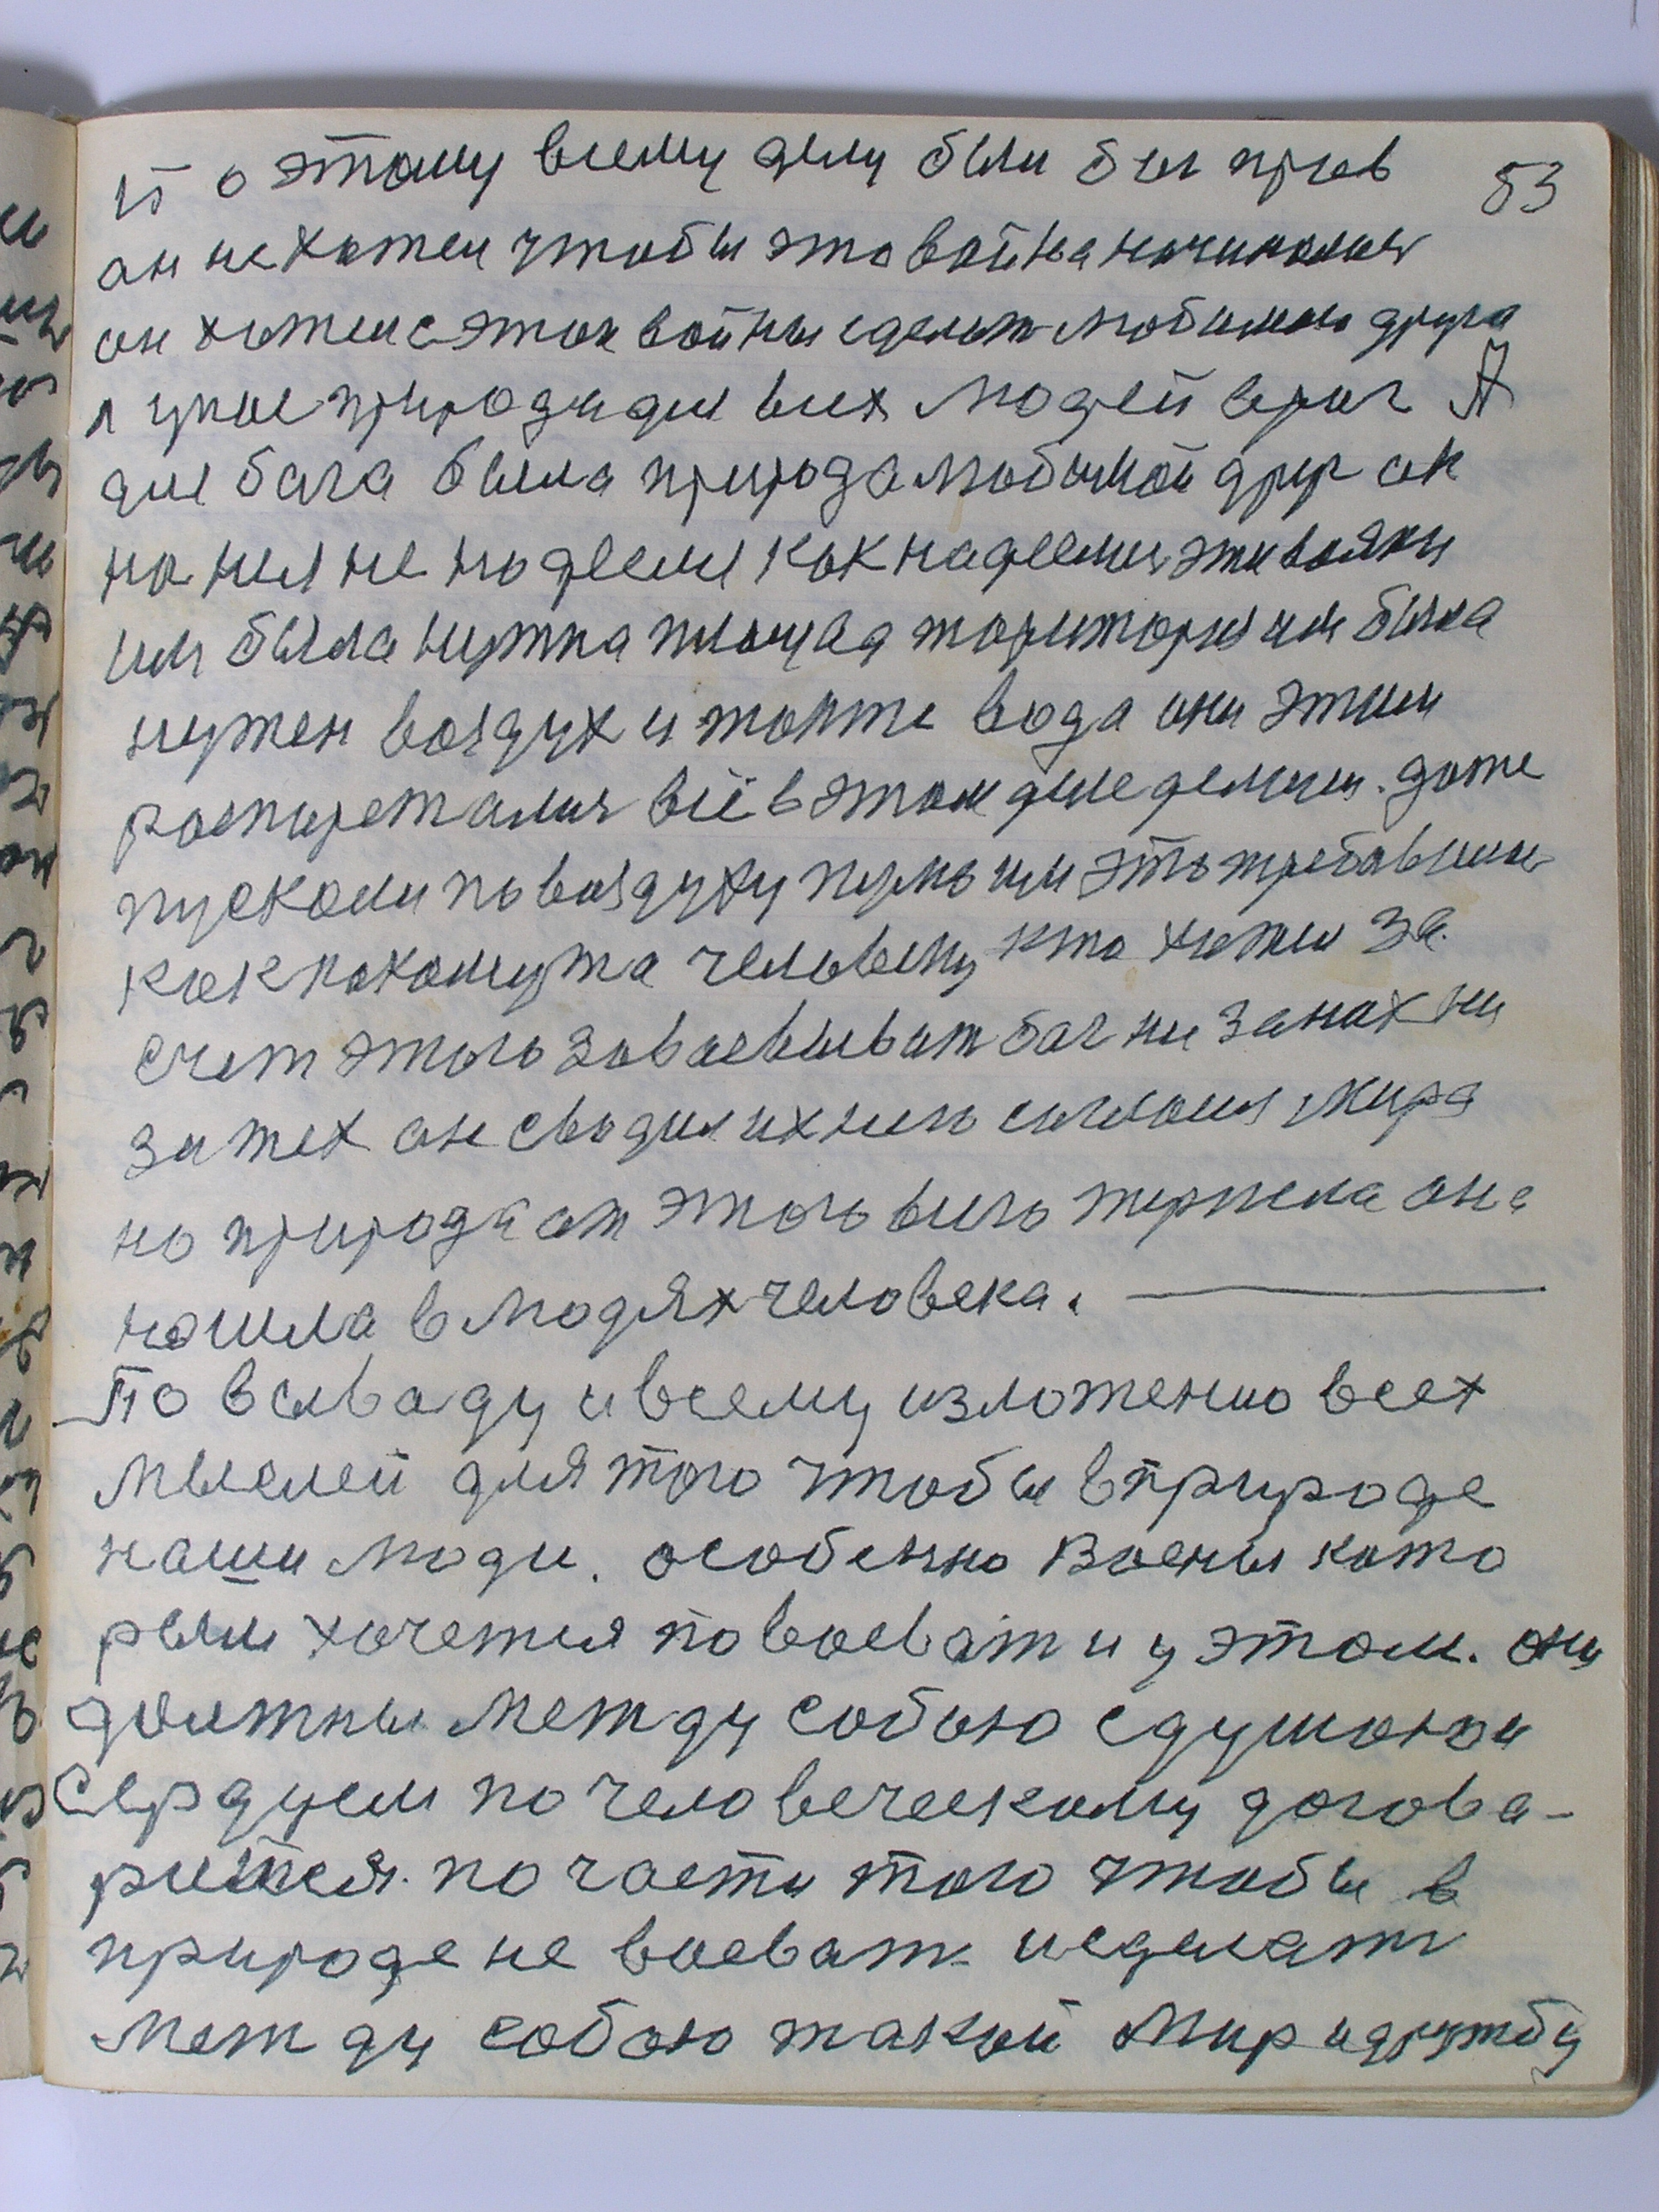 53
По этому всему делу были бы прав
он не хотел чтобы это война начиналась
он хотел с этой войны сделат любимаго друга
природа для всех людей враг А
для бага была природа любимой друг он
на нея не надеелся как надеелись эти вояки
им была нужна площад торитория им была
нужен воздух и тоите вода они этим
роспирежалися всё в этом деле делили. доже
пусколи по воздуху пулю им это требавшись
как какомута человеку кто хотел за
счет этого завоевыват баг ни за нах ни
за тех он сводил их него согласия мира
но природа от этого всего терпела она
нашла в людях человека.
По всеваду и всему изложению всех
мыслей для того чтобы в природе
наши люди. особенно воены кото
рым хочется повоеват и у этом. они
должны между собою с душою и
сердцем по человеческому догова-
рится. по части того чтобы в
природе не воеват и сделат
между собою такий мир и дружбу